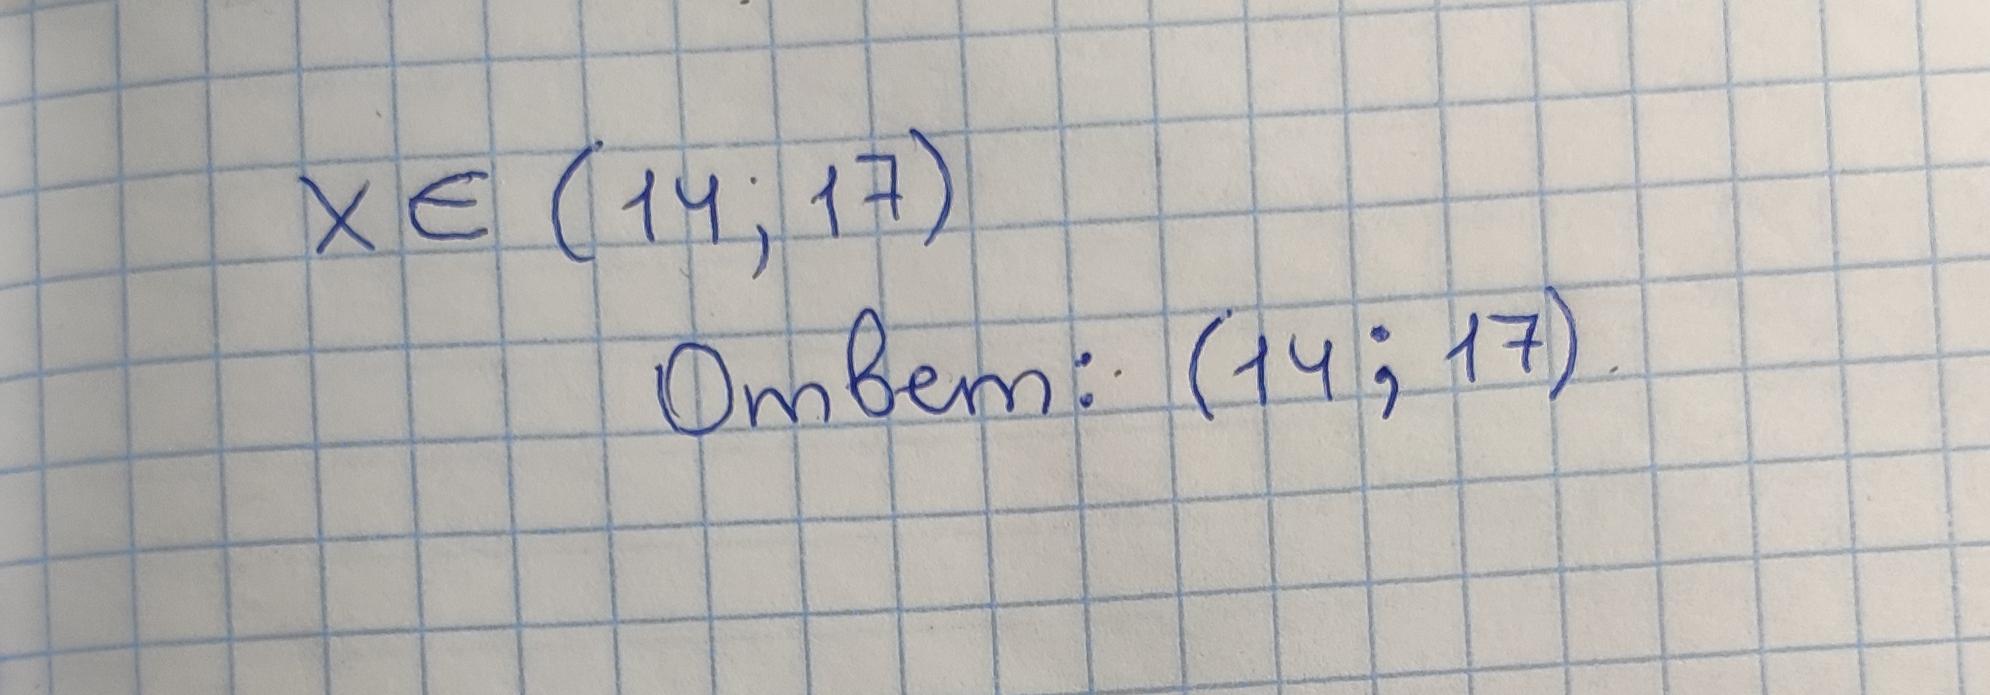 x ∈ (14; 17)
Ответ: (14; 17).